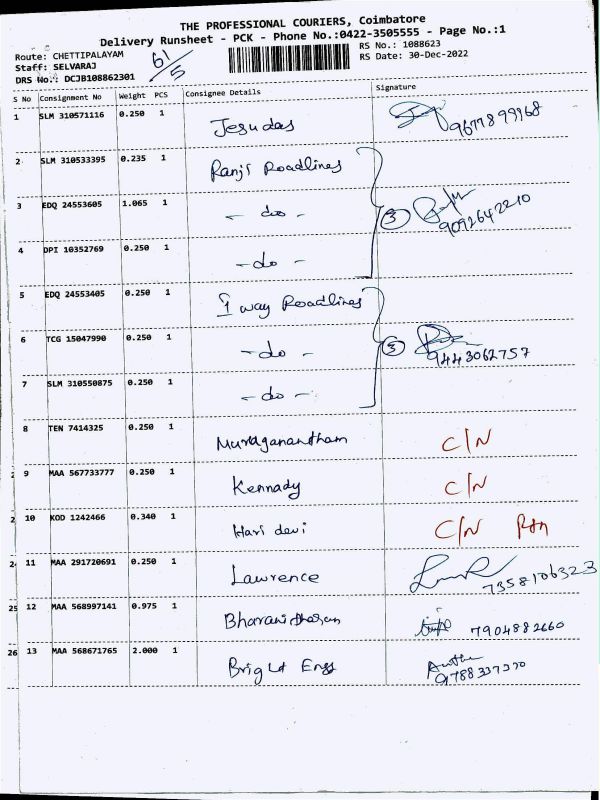 THE PROFESSIONAL COURIERS, Coimbatore
Delivery Runsheet - PCK - Phone No.:0422-3505555 - Page No.:1
Route: CHETTIPALAYAM 61/5 RS No.: 1088623
Staff: SELVARAJ RS Date: 30-Dec-2022
DRS No.: DCJB108862301
S No Consignment No Weight PCS Consignee Details Signature
1 SLM 310571116 0.250 1 Jesudas
2 SLM 310533395 0.235 1 Ranji Roadlines
3 EDQ 24553605 1.065 1 - do - 3 9092642210
4 DPI 10352769 0.250 1 - do -
5 EDQ 24553405 0.250 1 I way Roadlines
6 TCG 15047990 0.250 1 - do - 3 9443062757
7 SLM 310550875 0.250 1 - do -
8 TEN 7414325 0.250 1 Muruganantham C/N
2 9 MAA 567733777 0.250 1 Kennady C/N
2 10 KOD 1242466 0.340 1 Hari devi C/N
24 11 MAA 291720691 0.250 1 Lawrence 7358106323
25 12 MAA 568997141 0.975 1 Bharanidharan 7904882660
26 13 MAA 568671765 2.000 1 Bright Engg